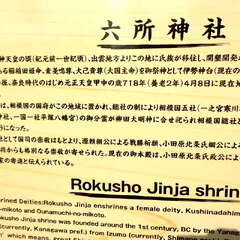 六所神社
神天皇の頃(紀元前一世紀頃)、出雲地方よりこの地に氏族が移住し、開墾開発が
る櫛稲田姫命、素盞嗚尊、大己貴尊(大国主命)を御祭神として伊勢神台(現在の
、奈良時代のはじめ元正天皇甲申の歳718年(養老2年)4月8日に現在地
は、相模国の国府がこの地域に置かれ、総社の制により相模国五社(一之宮寒川
神社、一国一社平塚八幡宮)の御分霊が柳田大明神に合せ祀られ相模国総社
として国司の崇敬はもとより、源頼朝公による戦勝祈願、小田原北条氏による
府からも格別なる崇敬が寄せられた。現在の御本殿は、小田原北条氏政公に
家の寄進と伝えられている。
Rokusho Jinja shrin
rined Deities:Rokusho Jinja enshrines a female deity, Kushiinadahim
-mikoto and Ounamuchi-no-mikoto.
kusho Jinja shrine was founded around the 1st century, BC by the Yanag
currently, Kanagawa pref.) from Izumo (currently, Shimane
which, present s